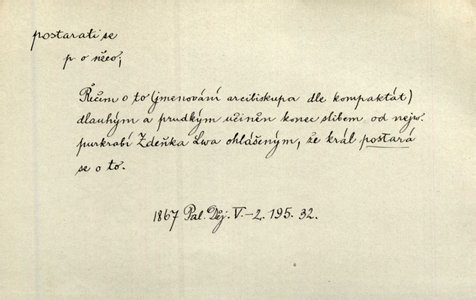 postarati se
p. o něco;
Řečem o to (jmenování arcibiskupa dle kompaktát)
dlauhým a prudkým učiněn konec slibem od nejw.
purkrabí Zdeňka Lwa ohlášeným, že král postará
se o to.
1867 Pal. Děj. V.-2. 195. 32.